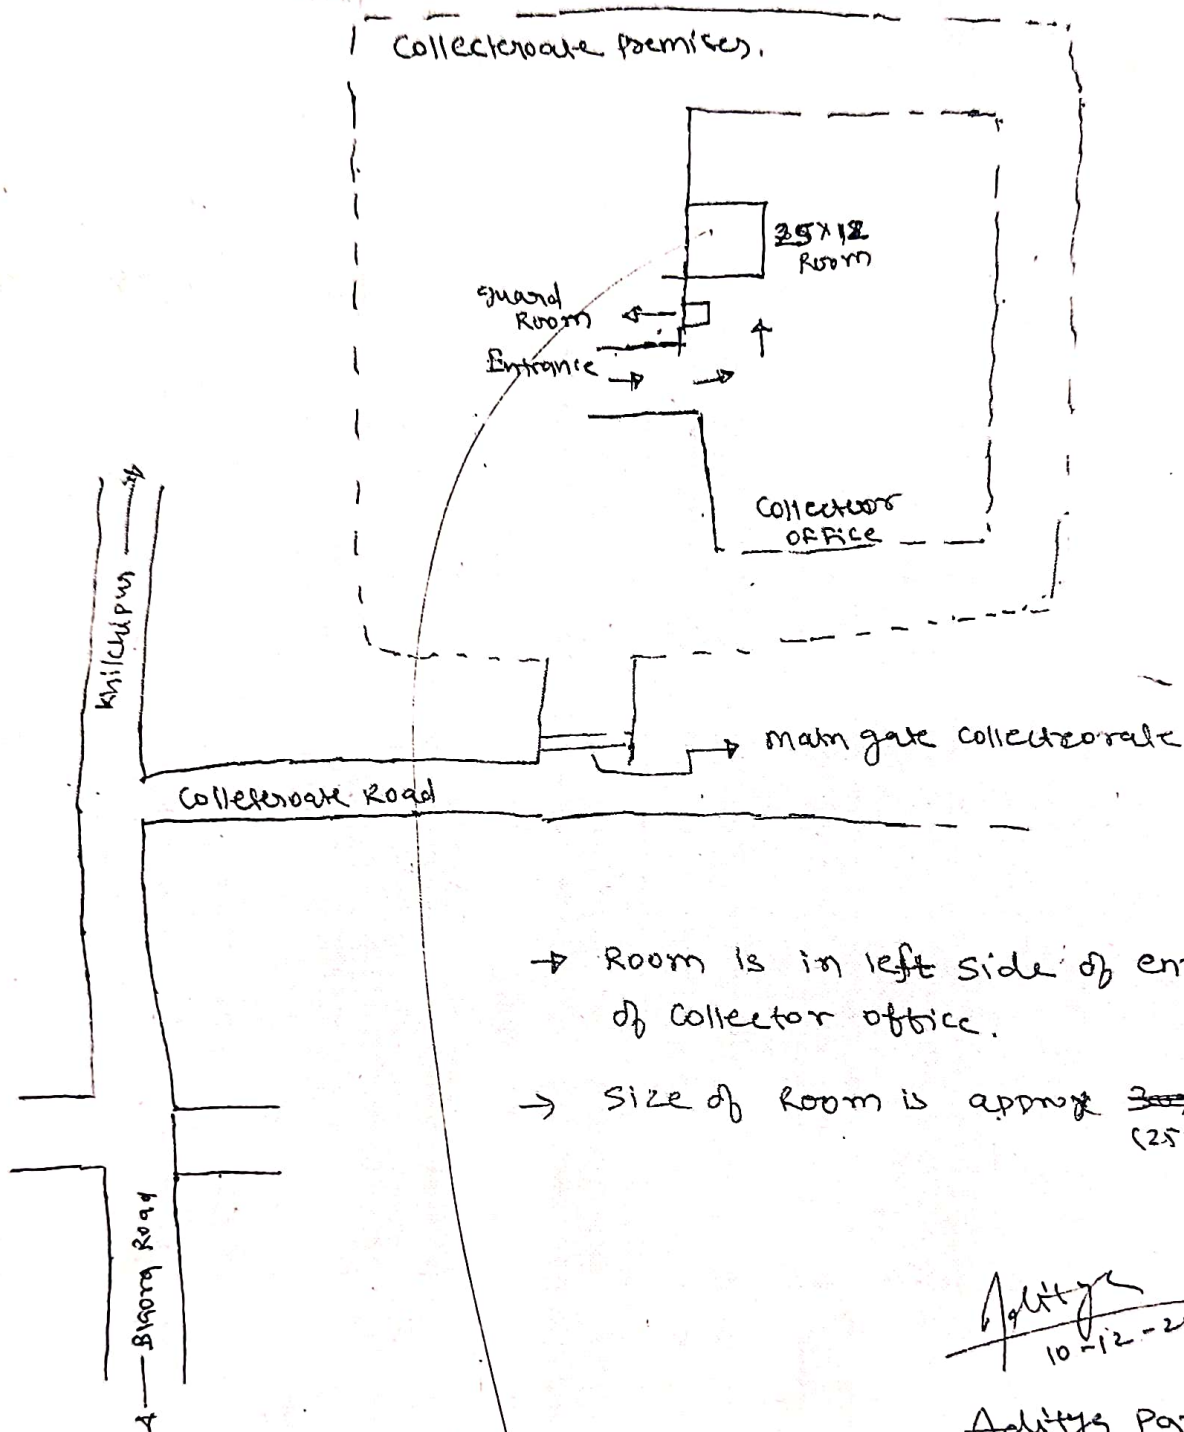 Collecteroate Premises.
25x12
Room
Guard
Room
Entrance
Collecteor
OFFice
Khilchipur
main gate Collecteorate
Collecteroate Road
→ Room is in left side of en
of Collector office.
→ Size of Room is approx
(25
Biaora Road
Aditya
10-12-2
Aditya Pa